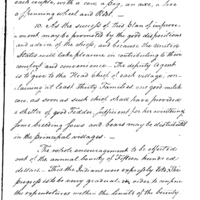 each couple, with a cow, a hog, an axe, a hoe
a Spinning wheel and Reel.
10. As the success of this Plan of improve-
ment may be promoted by the good dispositions
and advice of the chiefs, and because the United
States will take pleasure in contributing to their
comfort and convenience. The deputy agent
is to give to the Head chief of each village, con-
taining at least Thirty Families one good milch
cow, as soon as such chief shall have provided
a shelter & good Fodder, sufficient for her wintering
some breeding sows and boars may be distributed
in the principal villages.
The whole encouragement to be afforded
out of the annual bounty of Fifteen hundred
dollars. This the Indians were
progress to be very gradual, in order to confine
the expenditures within the limits of the bounty